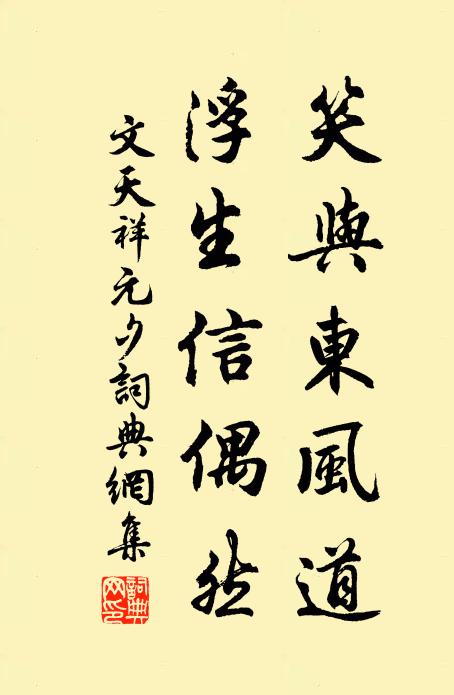 笑與東風道
浮生信偶然
文天祥元夕詞典網集
詞典網印